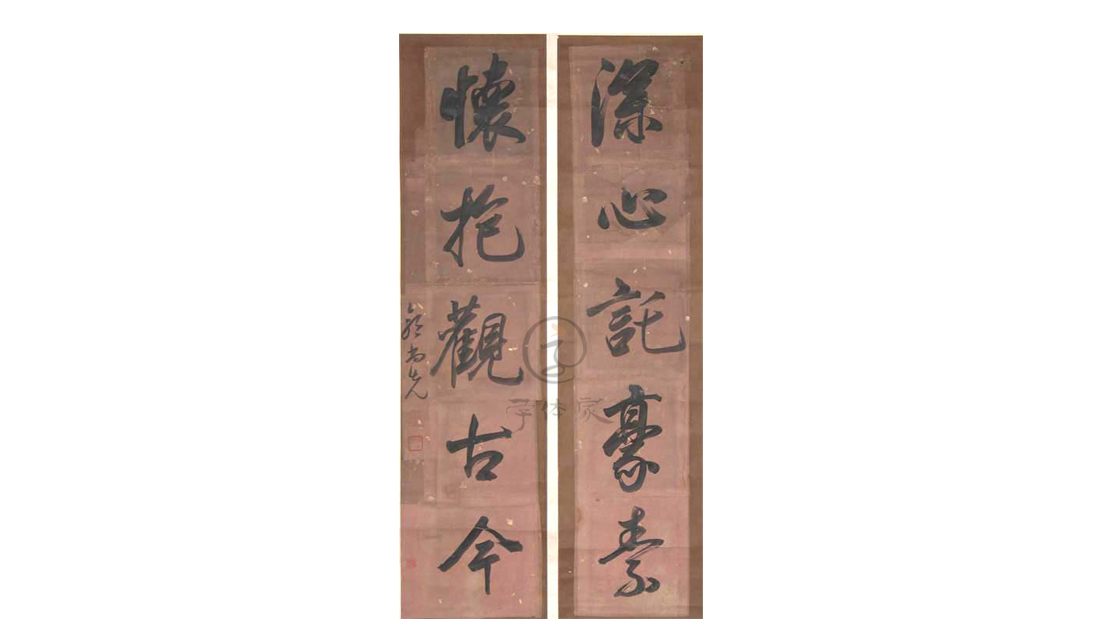 深心託豪素
懷抱觀古今
翁尚先
字体家